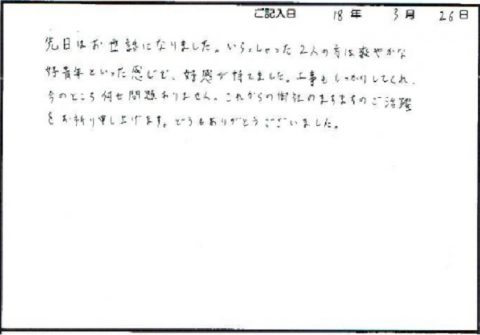 ご記入日 18 年 3 月 26 日
先日はお世話になりました。いらっしゃった2人の方は爽やかな
好青年といった感じで、好感が持てました。工事もしっかりしてくれ、
今のところ何も問題ありません。これからの御社のますますのご活躍
をお祈り申し上げます。どうもありがとうございました。